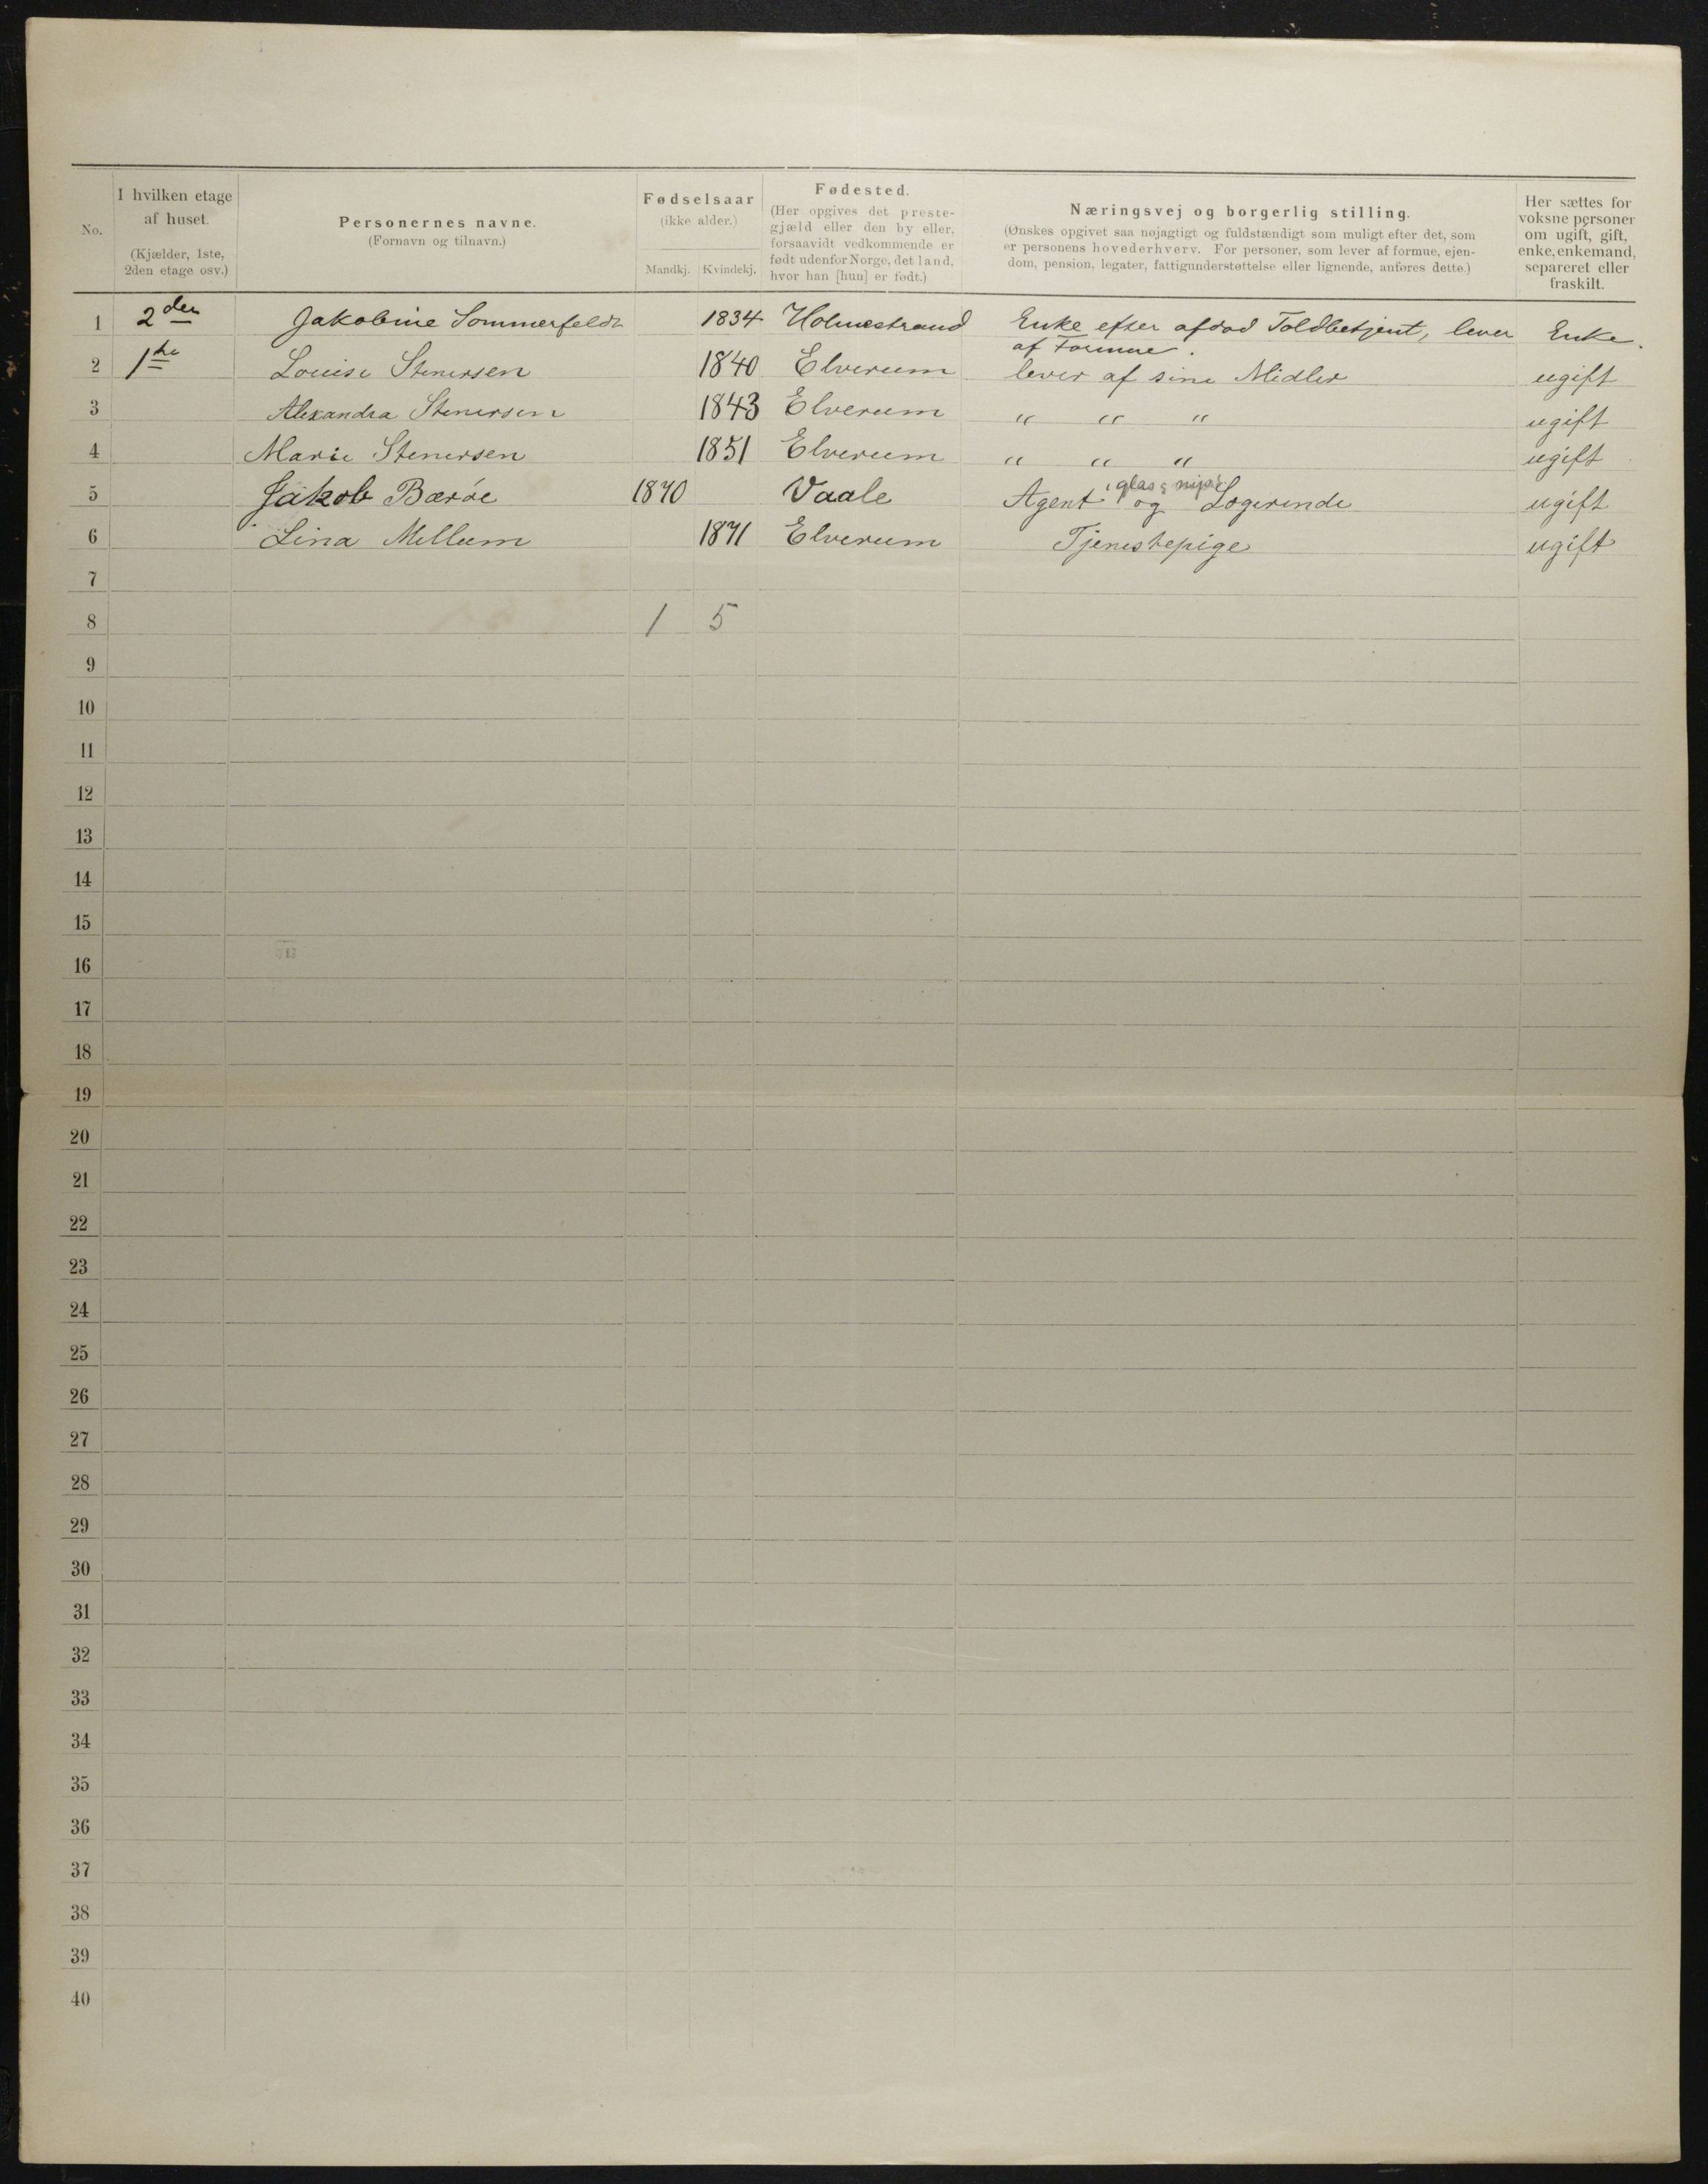 No.
I hvilken etage
af huset.
(Kjælder, 1ste,
2den etage osv.)
Personernes navne.
(Fornavn og tilnavn.)
Fødselsaar
(ikke alder.)
Mandkj. Kvindekj.
Fødested.
(Her opgives det preste-
gjæld eller den by eller,
forsaavidt vedkommende er
født udenfor Norge, det land,
hvor han [hun] er født.)
Næringsvej og borgerlig stilling.
(Ønskes opgivet saa nøjagtigt og fuldstændigt som muligt efter det, som
er personens hovederhverv. For personer, som lever af formue, ejen-
dom, pension, legater, fattigunderstøttelse eller lignende, anføres dette.)
Her sættes for
voksne personer
om ugift, gift,
enke, enkemand,
separeret eller
fraskilt.
1 2den Jakobine Sommerfeldt 1834 Holmestrand Enke efter afdød Toldbetjent, lever Enke.
af Formue.
2 1ste Louise Stenersen 1840 Elverum lever af sine Midler ugift
3 Alexandra Stenersen 1843 Elverum " " " ugift
4 Marie Stenersen 1851 Elverum " " " ugift
i glas
5 Jakob Bærøe 1870 Vaale Agent og Logerende ugift
6 Lina Mellum 1871 Elverum Tjenestepige ugift
7
8 1 5
9
10
11
12
13
14
15
16
17
18
19
20
21
22
23
24
25
26
27
28
29
30
31
32
33
34
35
36
37
38
39
40